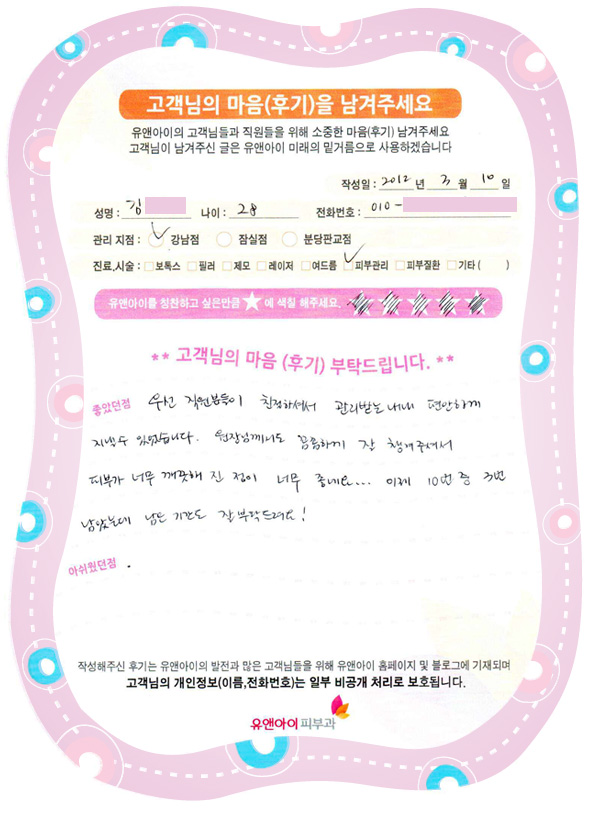 고객님의 마음(후기)을 남겨주세요
유앤아이의 고객님들과 직원들을 위해 소중한 마음(후기) 남겨주세요
고객님이 남겨주신 글은 유앤아이 미래의 밑거름으로 사용하겠습니다
작성일 : 2012 년 3 월 10 일
성명 : 김 나이 : 28 전화번호 : 010 -
관리 지점 : 강남점 잠실점 분당판교점
진료,시술 : 보톡스 필러 제모 레이저 여드름 피부관리 피부질환 기타 ( )
유앤아이를 칭찬하고 싶은만큼 ★ 에 색칠 해주세요.
** 고객님의 마음 (후기) 부탁드립니다. **
좋았던점 우선 직원분들이 친절하셔서 관리받는 내내 편안하게
지낼수 있었습니다. 원장님께서도 꼼꼼하게 잘 챙겨주셔서
피부가 너무 깨끗해 진 점이 너무 좋네요... 이제 10번 중 3번
남았는데 남은 기간도 잘 부탁드려요!
아쉬웠던점 .
작성해주신 후기는 유앤아이의 발전과 많은 고객님들을 위해 유앤아이 홈페이지 및 블로그에 기재되며
고객님의 개인정보(이름,전화번호)는 일부 비공개 처리로 보호됩니다.
유앤아이피부과